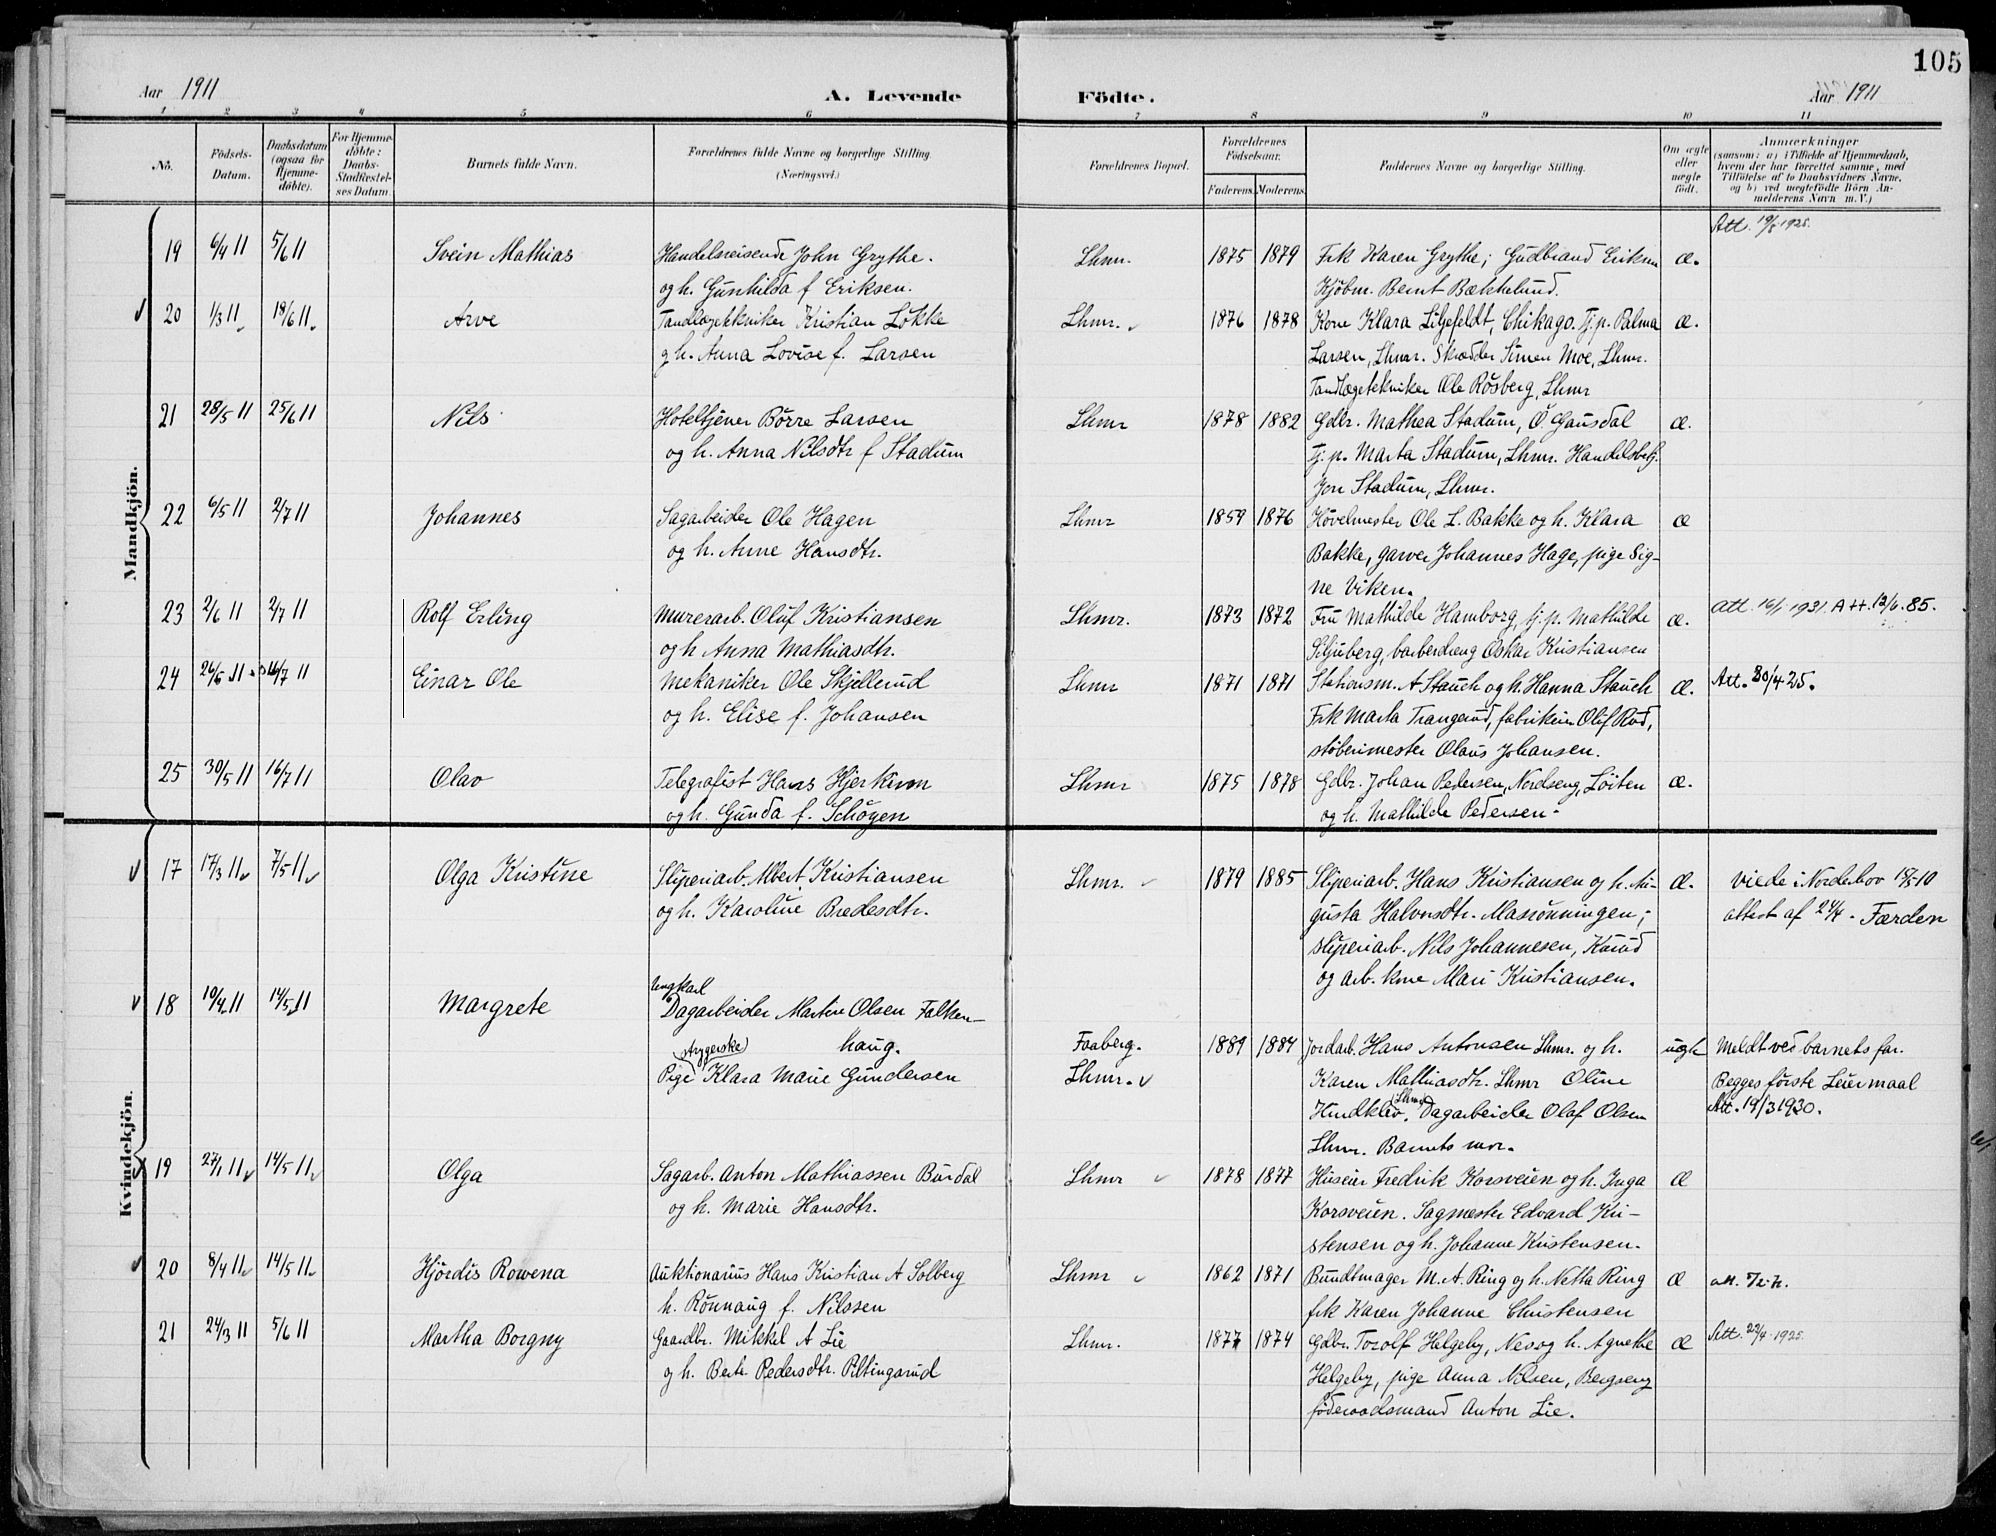 105
Aar 1911
A. Levende
Födte.
Aar 1911
1 2 3 4 5 6 7 8 9 10 11
No.
Födsels-
Datum.
Daabsdatum
(ogsaa for
Hjemme-
döbte).
For Hjemme-
döbte:
Daabs-
Stadfæstel-
ses Datum.
Barnets fulde Navn.
Forældrenes fulde Navne og borgerlige Stilling
(Næringsvei.)
Forældrenes Bopæl.
Forældrenes
Födselsaar.
Faderens. Moderens.
Faddernes Navne og borgerlige Stilling.
Om ægte
eller
uægte
födt.
Anmærkninger
(saasom: a) i Tilfælde af Hjemmedaab,
hvem der har forrettet samme, med
Tilföielse af to Daabsvidners Navne,
og b) ved uegtefödte Börn An-
melderens Navn m. V.)
Mandkjön.
Att. 19/8 1925.
19 6/4 11 5/6 11 Svein Mathias Handelsreisende John Grythe. Lhmr. 1875 1879 Frk Karen Grythe; Gudbrand Eriksen æ.
og h. Gunhilda f Eriksen. Kjöbm. Bernt Bækkelund.
20 1/3 11 18/6 11 Arve Tandlægetekniker Kristian Lökke Lhmr. 1876 1878 Kone Klara Liljefeldt, Chikago. Tj.p. Palma æ.
g h. Anna Lovise f. Larsen Larsen, Lhmr. Skrædder Simen Moe, Lhmr.
Tandlægetekniker Ole Rösberg, Lhmr
21 28/5 11 25/6 11 Nils Hoteltjener Börre Larsen Lhmr 1878 1882 Gdbr. Mathea Stadum, Ö. Gausdal æ.
og h. Anna Nilsdtr f Stadum Tj.p. Marta Stadum, Lhmr. Handelsbetj.
Jon Stadum, Lhmr.
22 6/5 11 2/7 11 Johannes Sagarbeider Ole Hagen Lhmr 1859 1876 Hövelmester Ole L. Bakke og h. Klara æ
og h. Anne Hansdtr. Bakke, garver Johannes Hage, pige Sig-
ne Viken.
23 2/6 11 2/7 11 Rolf Erling Murerarb. Oluf Kristiansen Lhmr. 1873 1872 Fru Mathilde Hamborg, tj.p. Mathilde æ. Att. 16/1 1931. Att. 12/6. 85.
og h Anna Mathiasdtr. Siljuberg, barberdreng Oskar Kristiansen
24 26/5 11 16/7 11 Einar Ole Mekaniker Ole Skjellerud Lhmr 1871 1871 Stationsm. A Stauch og h. Hanna Stauch æ. Att. 30/4 25.
og h. Elise f. Johansen Frk Marta Trangerud, fabrikeier Oluf Rud,
stöberimester Olaus Johansen.
25 30/5 11 16/7 11 Olav Telegrafist Hans Hjerkinn Lhmr 1875 1878 Gdbr. Johan Pedersen, Nordseng, Löiten æ.
og h. Gunda f. Schögen og h. Mathilde Pedersen -
Kvindekjön.
17 17/3 11 7/5 11 Olga Kristine Sliperiarb. Albert Kristiansen Lhmr. 1879 1885 Sliperiarb. Hans Kristiansen og h. Au- æ. Viede i Norderhov 15/5 10
og h. Karoline Bredesdtr. gusta Halvorsdtr. Masrönningen; attest af 24/4 - Færden
sliperiarb. Nils Johannesen, Korud
og arb. kone Mari Kristiansen.
18 10/4 11 14/5 11 Margrete Ungkarl
Dagarbeider Martin Olsen Falken-
haug. Faaberg. 1889 1884 Jordarb. Hans Antonsen Lhmr. og h. uægte Meldt ved barnets far.
Strygerske
Pige Klara Marie Gundersen Lhmr. Karen Mathiasdtr. Lhmr Oline Begges förste Leiermaal
Hundklev, Lhmr Dagarbeider Olaf Olsen Att. 19/3 1930.
Lhmr. Barnets mor.
19 27/1 11 14/5 11 Olga Sagarb. Anton Mathiassen Burdal Lhmr 1878 1877 Huseier Fredrik Korsveien og h. Inga æ
og h. Marie Hansdtr. Korsveien. Sagmester Edvard Kri-
stensen og h. Johanne Kristensen.
20 8/4 11 14/5 11 Hjördis Rowena Auktionarius Hans Kristian A Solberg Lhmr 1862 1871 Bundtmager M. A. Ring og h. Netta Ring æ
h. Rönnaug f. Nilssen frk Karen Johanne Christensen
21 24/3 11 5/6 11 Martha Borgny Gaardbr. Mikkel A Lie Lhmr. 1877 1874 Gdbr. Torolf Helgeby, Nes og h. Agnethe æ Att. 22/4 1925.
og h. Berte Pedersdtr. Piltingsrud Helgeby, pige Anna Nilsen, Bergseng
föderaadsmand Anton Lie.